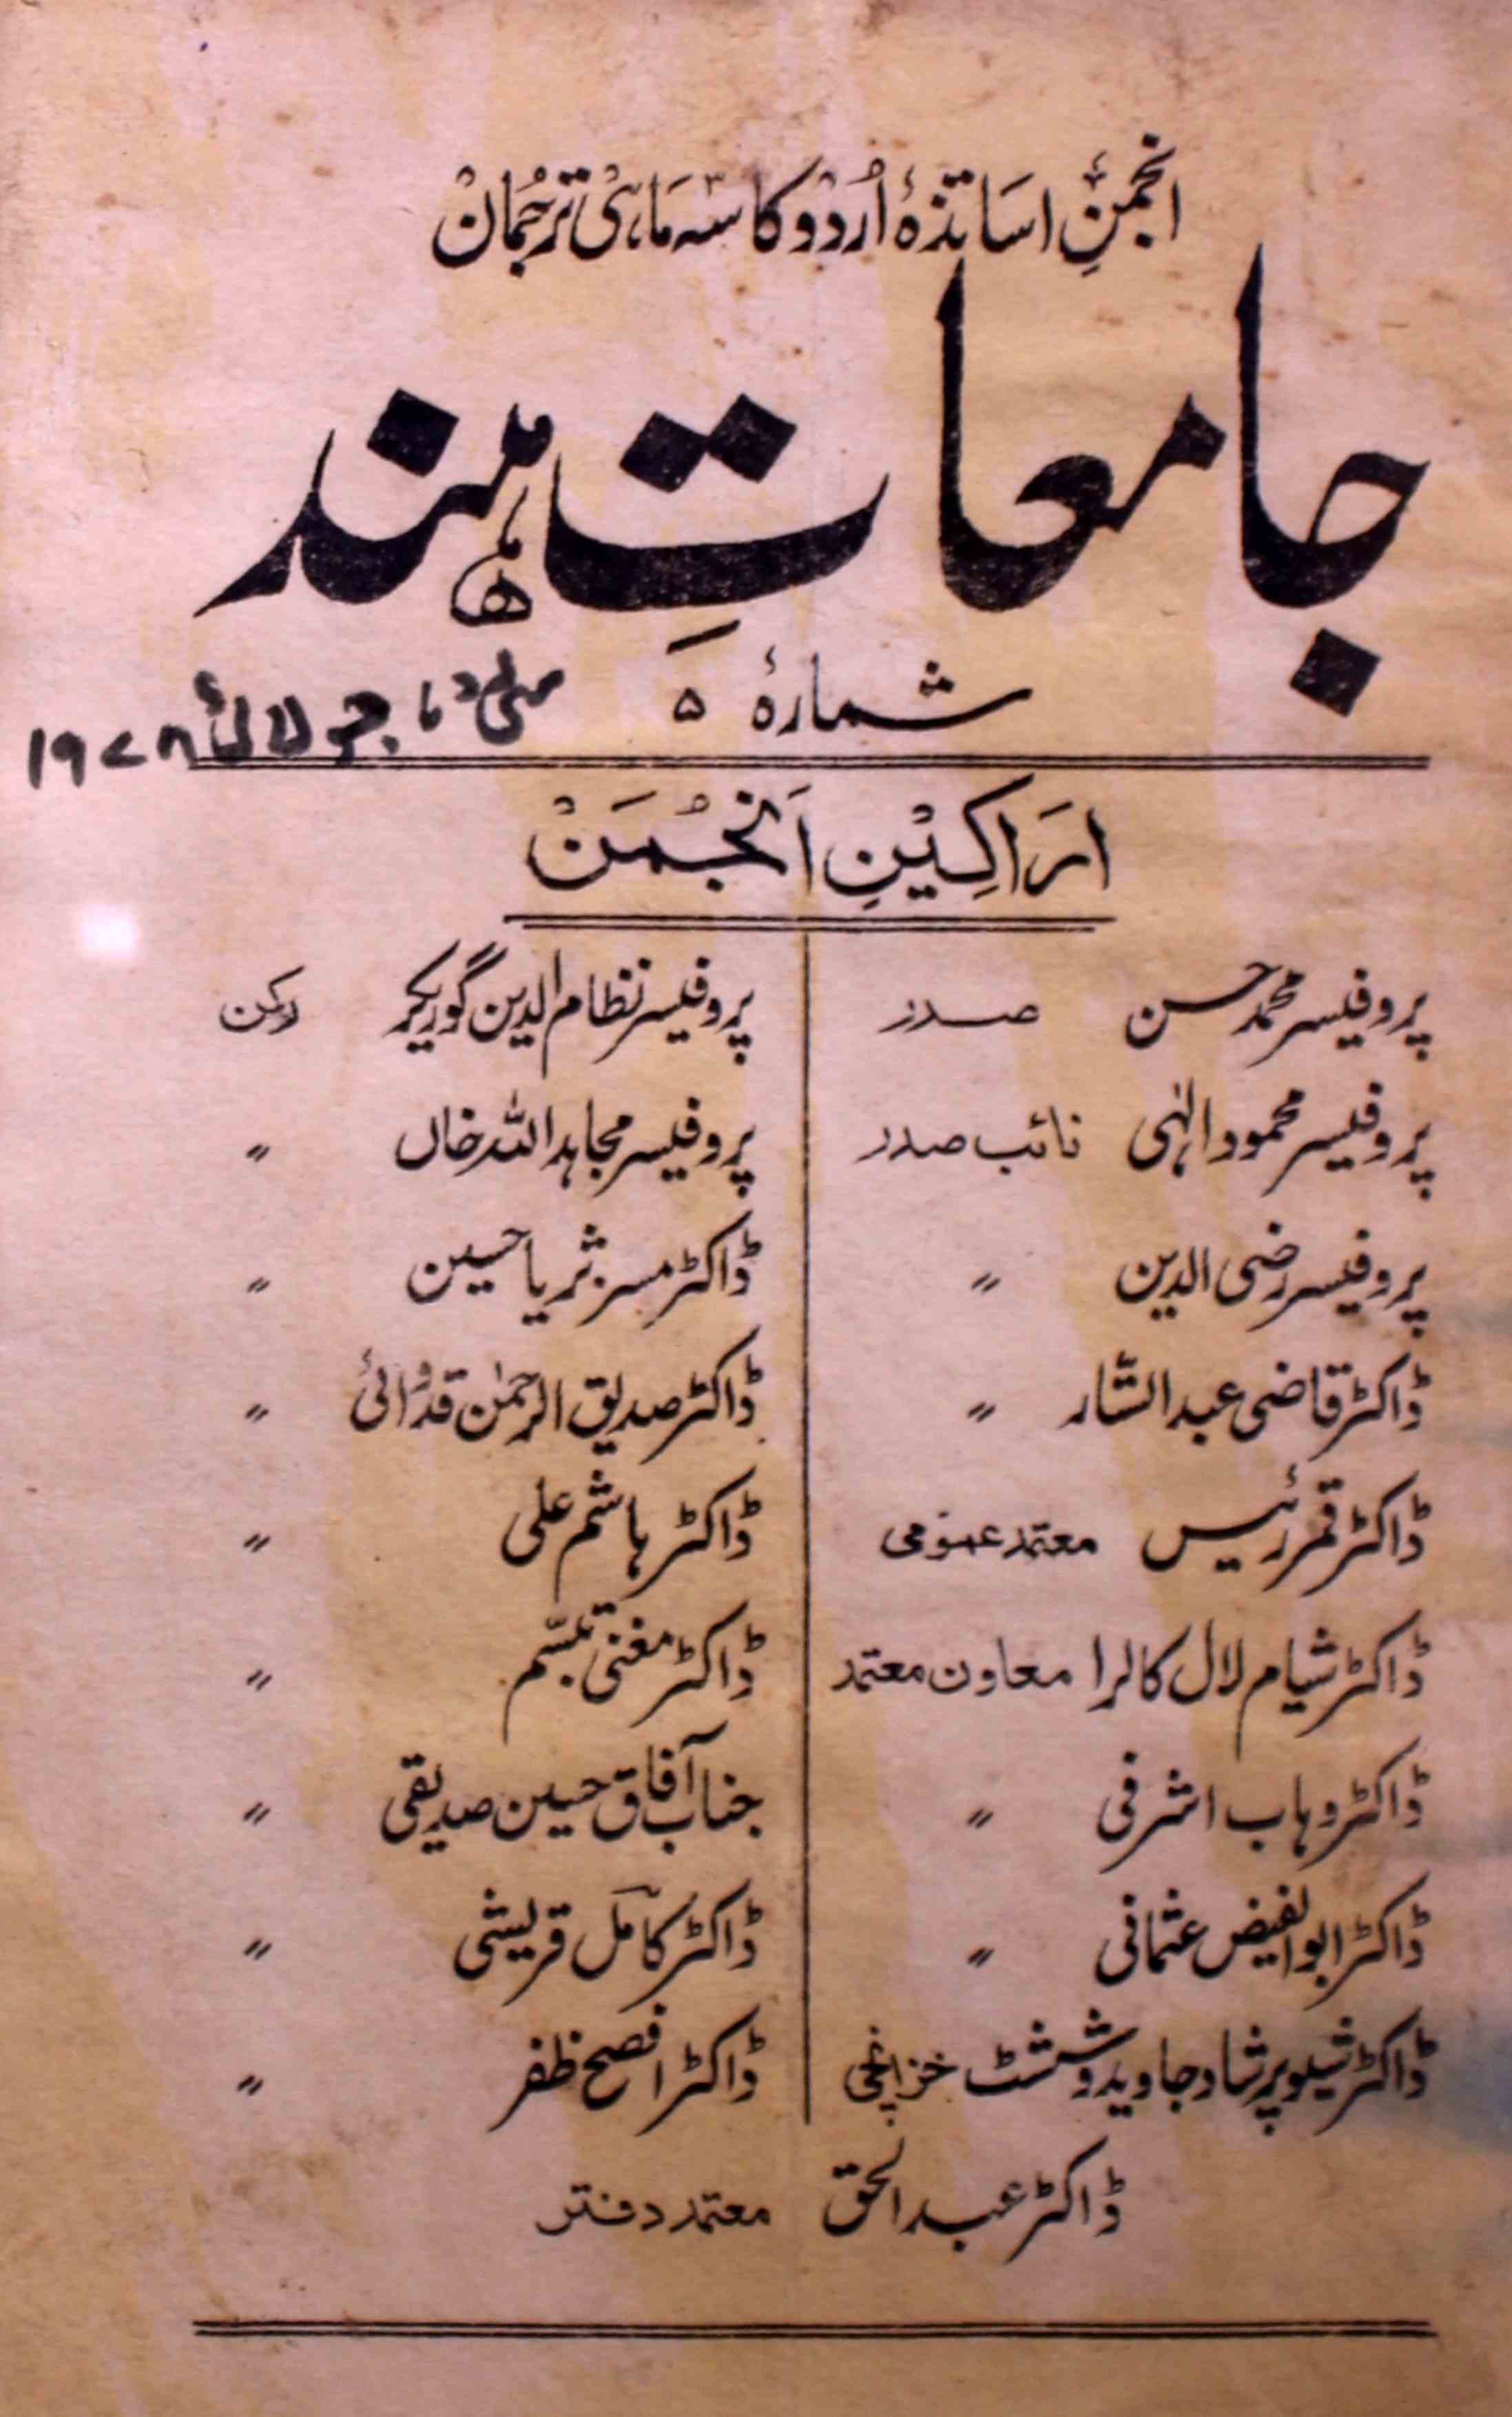 انجمنِ اساتذۂ اُردو کا سہ ماہی ترجمان
جامعاتِ ہند
شمارۂ ۵
مئی تا جولائی ۱۹۷۸
اراکینِ انجمن
پروفیسر محمد حسن صدر
پروفیسر محمود الٰہی نائب صدر
پروفیسر رضی الدین 〃
ڈاکٹر قاضی عبدالستّار 〃
ڈاکٹر قمر رئیس معتمد عمومی
ڈاکٹر شیام لال کالرا معاون معتمد
ڈاکٹر وہاب اشرفی 〃
ڈاکٹر ابوالفیض عثمانی 〃
ڈاکٹر شیلو پرشاد جاوید وششٹ خزانچی
پروفیسر نظام الدین گوریکر رکن
پروفیسر مجاہد اللہ خاں 〃
ڈاکٹر مسز ثریا حسین 〃
ڈاکٹر صدیق الرحمٰن قدوائی 〃
ڈاکٹر ہاشم علی 〃
ڈاکٹر مغنی تبسّم 〃
جناب آفاق حسین صدیقی 〃
ڈاکٹر کامل قریشی 〃
ڈاکٹر افصح ظفر 〃
ڈاکٹر عبدالحق معتمد دفتر